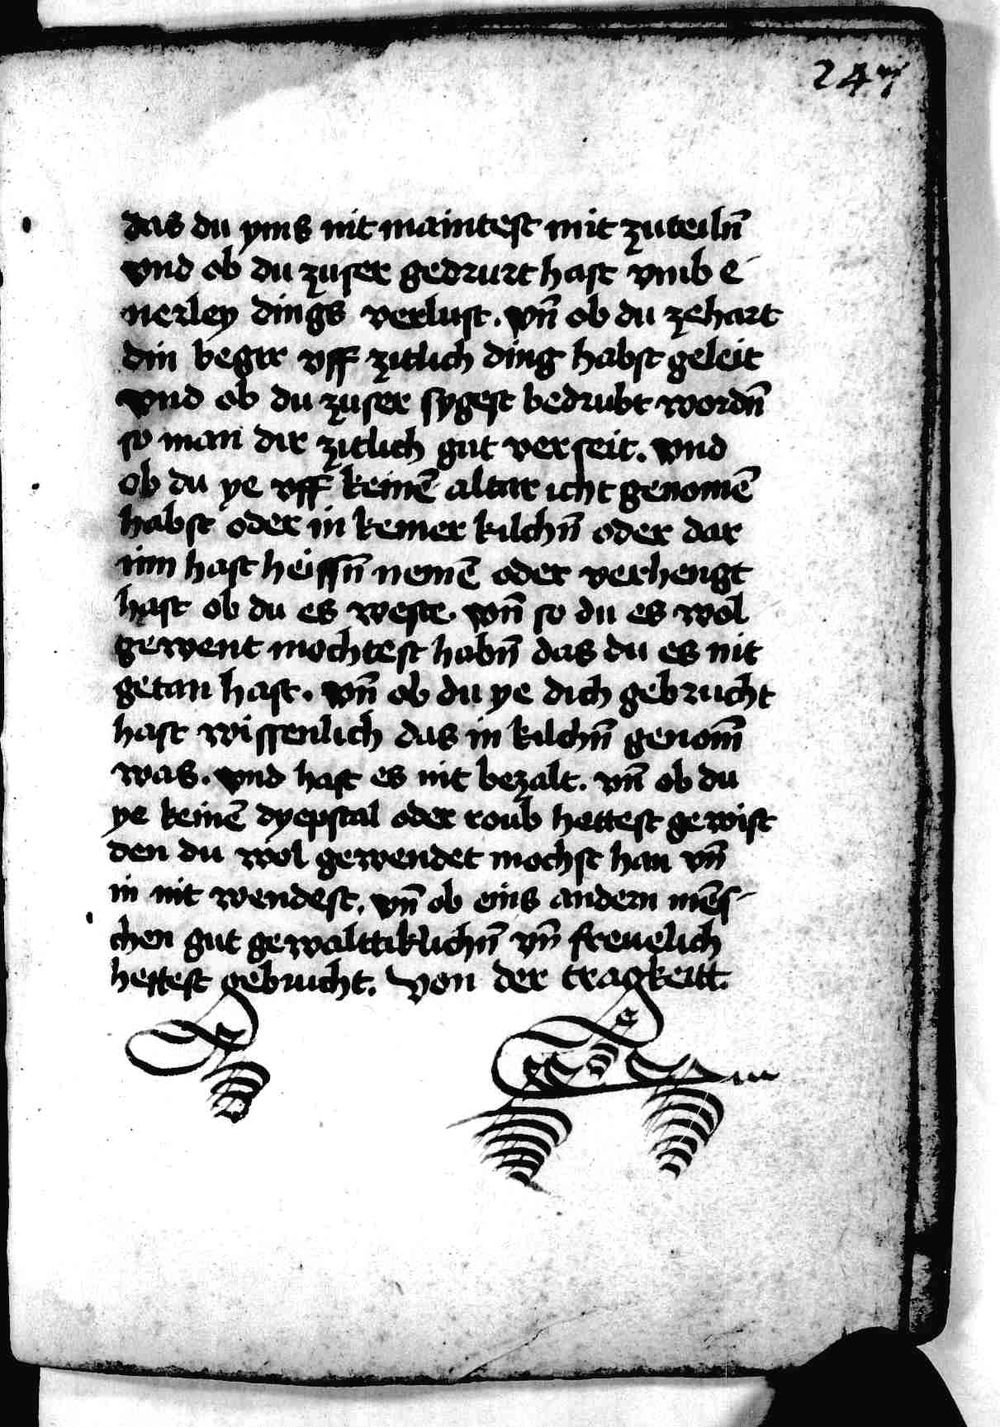 247
das du yms nit maintest mit zuteiln̄
vnd ob du zuser gedrurt hast vmb e-
nerley dings verlust. vn̄ ob du zehart
din begir vff zitlich ding habst geleit
vnd ob du zuser sygest bedrubt wordn̄
so man dir zitlich gut verseit. vnd
ob du ye vff keinē altar icht genomē
habst oder in keiner kilchn̄ oder dar
inn hast heissn̄ nemē oder verhengt
hast ob du es weste. vn̄ so du es wol
gewent mochtest habn̄ das du es nit
getan hast. vn̄ ob du ye dich gebrucht
hast wissenlich das in kilchn̄ genom̄
was. vnd hast es nit bezalt. vn̄ ob du
ye keinē dyepstal oder roub hettest gewist
den du wol gewendet mochst han vn̄
in nit wendest. vn̄ ob eins andern mēs-
chen gut gewalttiklichn̄ vn̄ freuelich
hettest gebrucht. Von der tragkeitt.